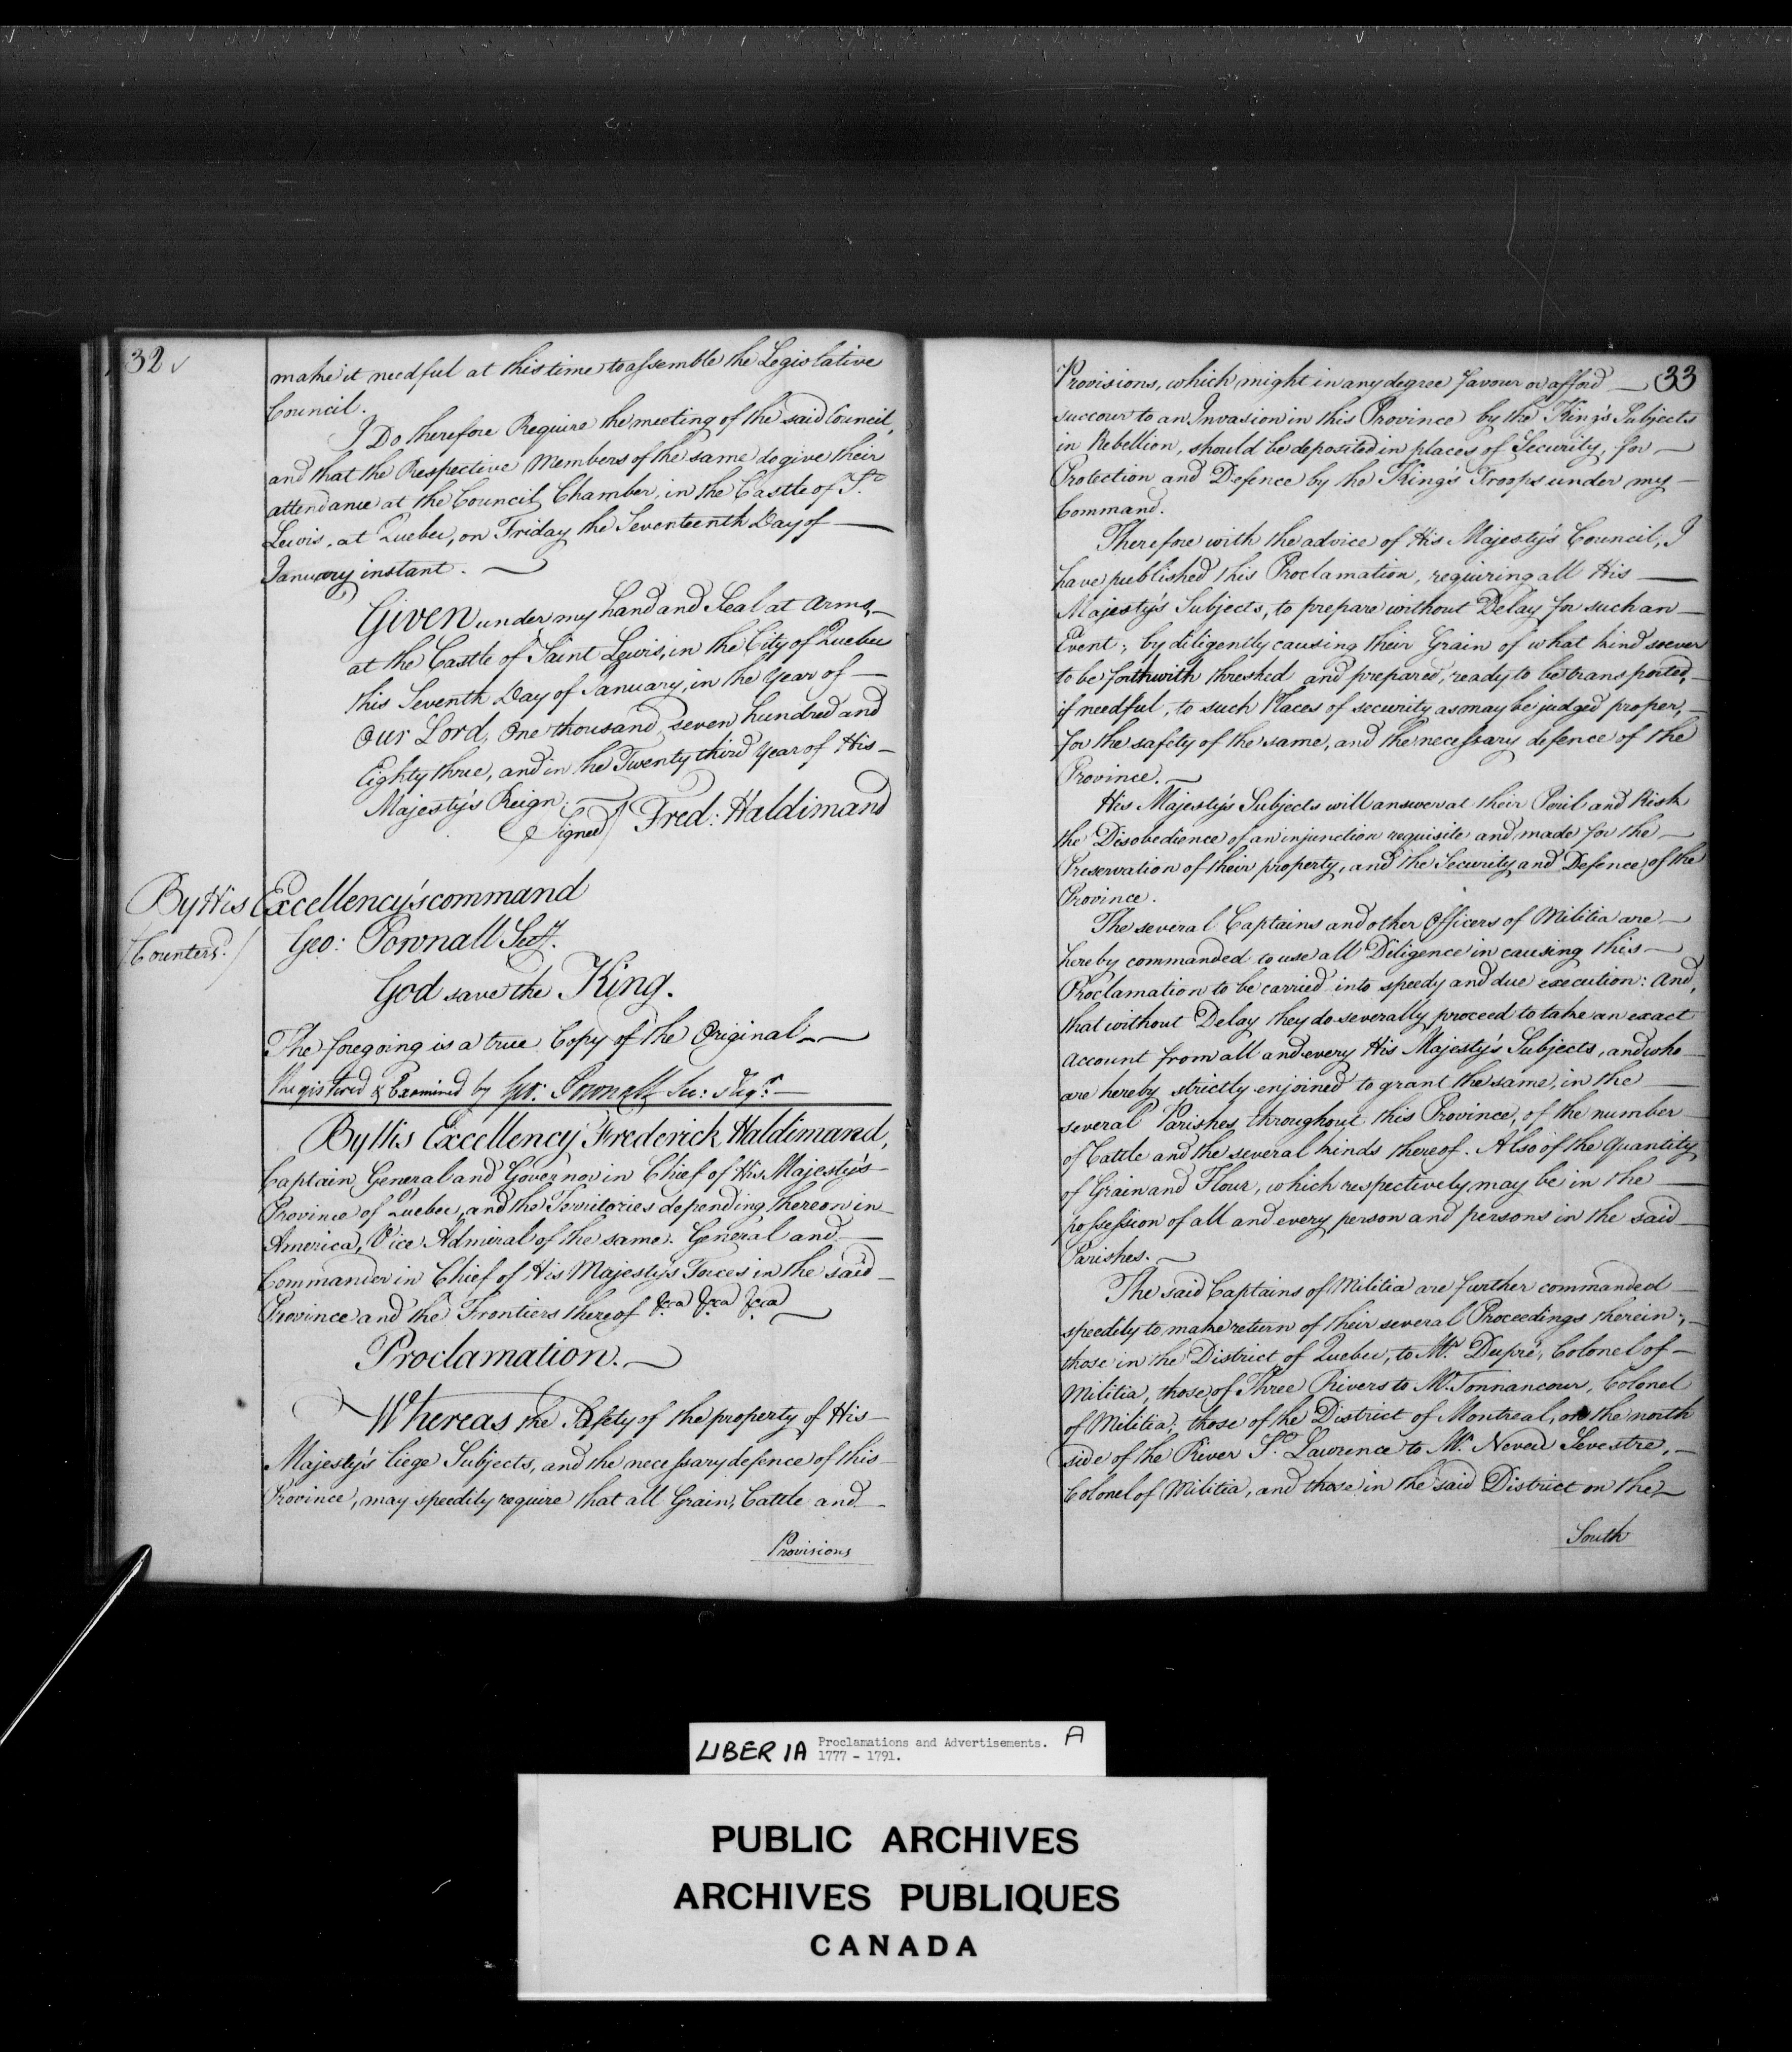 32
make it needful at this time to assemble the Legislative
Council.
I Do therefore Require the meeting of the said Council,
and that the Respective Members of the same do give their
attendance at the Council Chamber, in the Castle of St.
Lewis, at Quebec, on Friday the Seventeenth Day of —
January instant. —
Given under my hand and Seal at Arms, —
at the Castle of Saint Lewis, in the City of Quebec
this Seventh Day of January, in the Year of —
Our Lord, One thousand, seven hundred and
Eighty three, and in the Twenty third Year of His —
Majesty's Reign. —
(Signed) Fred: Haldimand
By His Excellency's command
(Counters.d) Geo: Pownall Secy.
God save the King.
The foregoing is a true Copy of the Original —
Registered & Examined by Geo: Pownall Sec: Regr. —
By His Excellency Frederick Haldimand,
Captain General and Governor in Chief of His Majesty's —
Province of Quebec, and the Territories depending thereon in —
America, Vice Admiral of the same. General and —
Commander in Chief of His Majesty's Forces in the said —
Province and the Frontiers thereof &ca &ca &ca
Proclamation. —
Whereas the Safety of the property of His —
Majesty's liege Subjects, and the necessary defence of this —
Province, may speedily require that all Grain, Cattle and —
Provisions
33
Provisions, which might in any degree favour or afford —
succour to an Invasion in this Province by the King's Subjects
in Rebellion, should be deposited in places of Security, for —
Protection and Defence by the King's Troops under my —
Command.
Therefore with the advice of His Majesty's Council, I
have published this Proclamation, requiring all His —
Majesty's Subjects, to prepare without Delay for such an —
Event; by diligently causing their Grain of what kind soever
to be forthwith threshed and prepared, ready to be transported, —
if needful, to such Places of security as may be judged proper, —
for the safety of the same, and the necessary defence of the
Province. —
His Majesty's Subjects will answer at their Peril and Risk
the Disobedience of an injunction requisite and made for the —
Preservation of their property, and the Security and Defence of the
Province.
The several Captains and other Officers of Militia are —
hereby commanded to use all Diligence in causing this —
Proclamation to be carried into speedy and due execution: And,
that without Delay they do severally proceed to take an exact
Account from all and every His Majesty's Subjects, and who —
are hereby strictly enjoined to grant the same, in the —
several Parishes throughout this Province, of the number —
of Cattle and the several kinds thereof. Also of the Quantity
of Grain and Flour, which respectively may be in the —
possession of all and every person and persons in the said —
Parishes. —
The said Captains of Militia are further commanded —
speedily to make return of their several Proceedings therein; —
those in the District of Quebec, to Mr. Dupré, Colonel of —
Militia, those of Three Rivers to Mr. Tonnancour, Colonel
of Militia, those of the District of Montreal, on the north
side of the River St. Lawrence to Mr. Neveu Sevestre, —
Colonel of Militia, and those in the said District on the —
South
LIBER 1A Proclamations and Advertisements. A
1777 - 1791.
PUBLIC ARCHIVES
ARCHIVES PUBLIQUES
CANADA